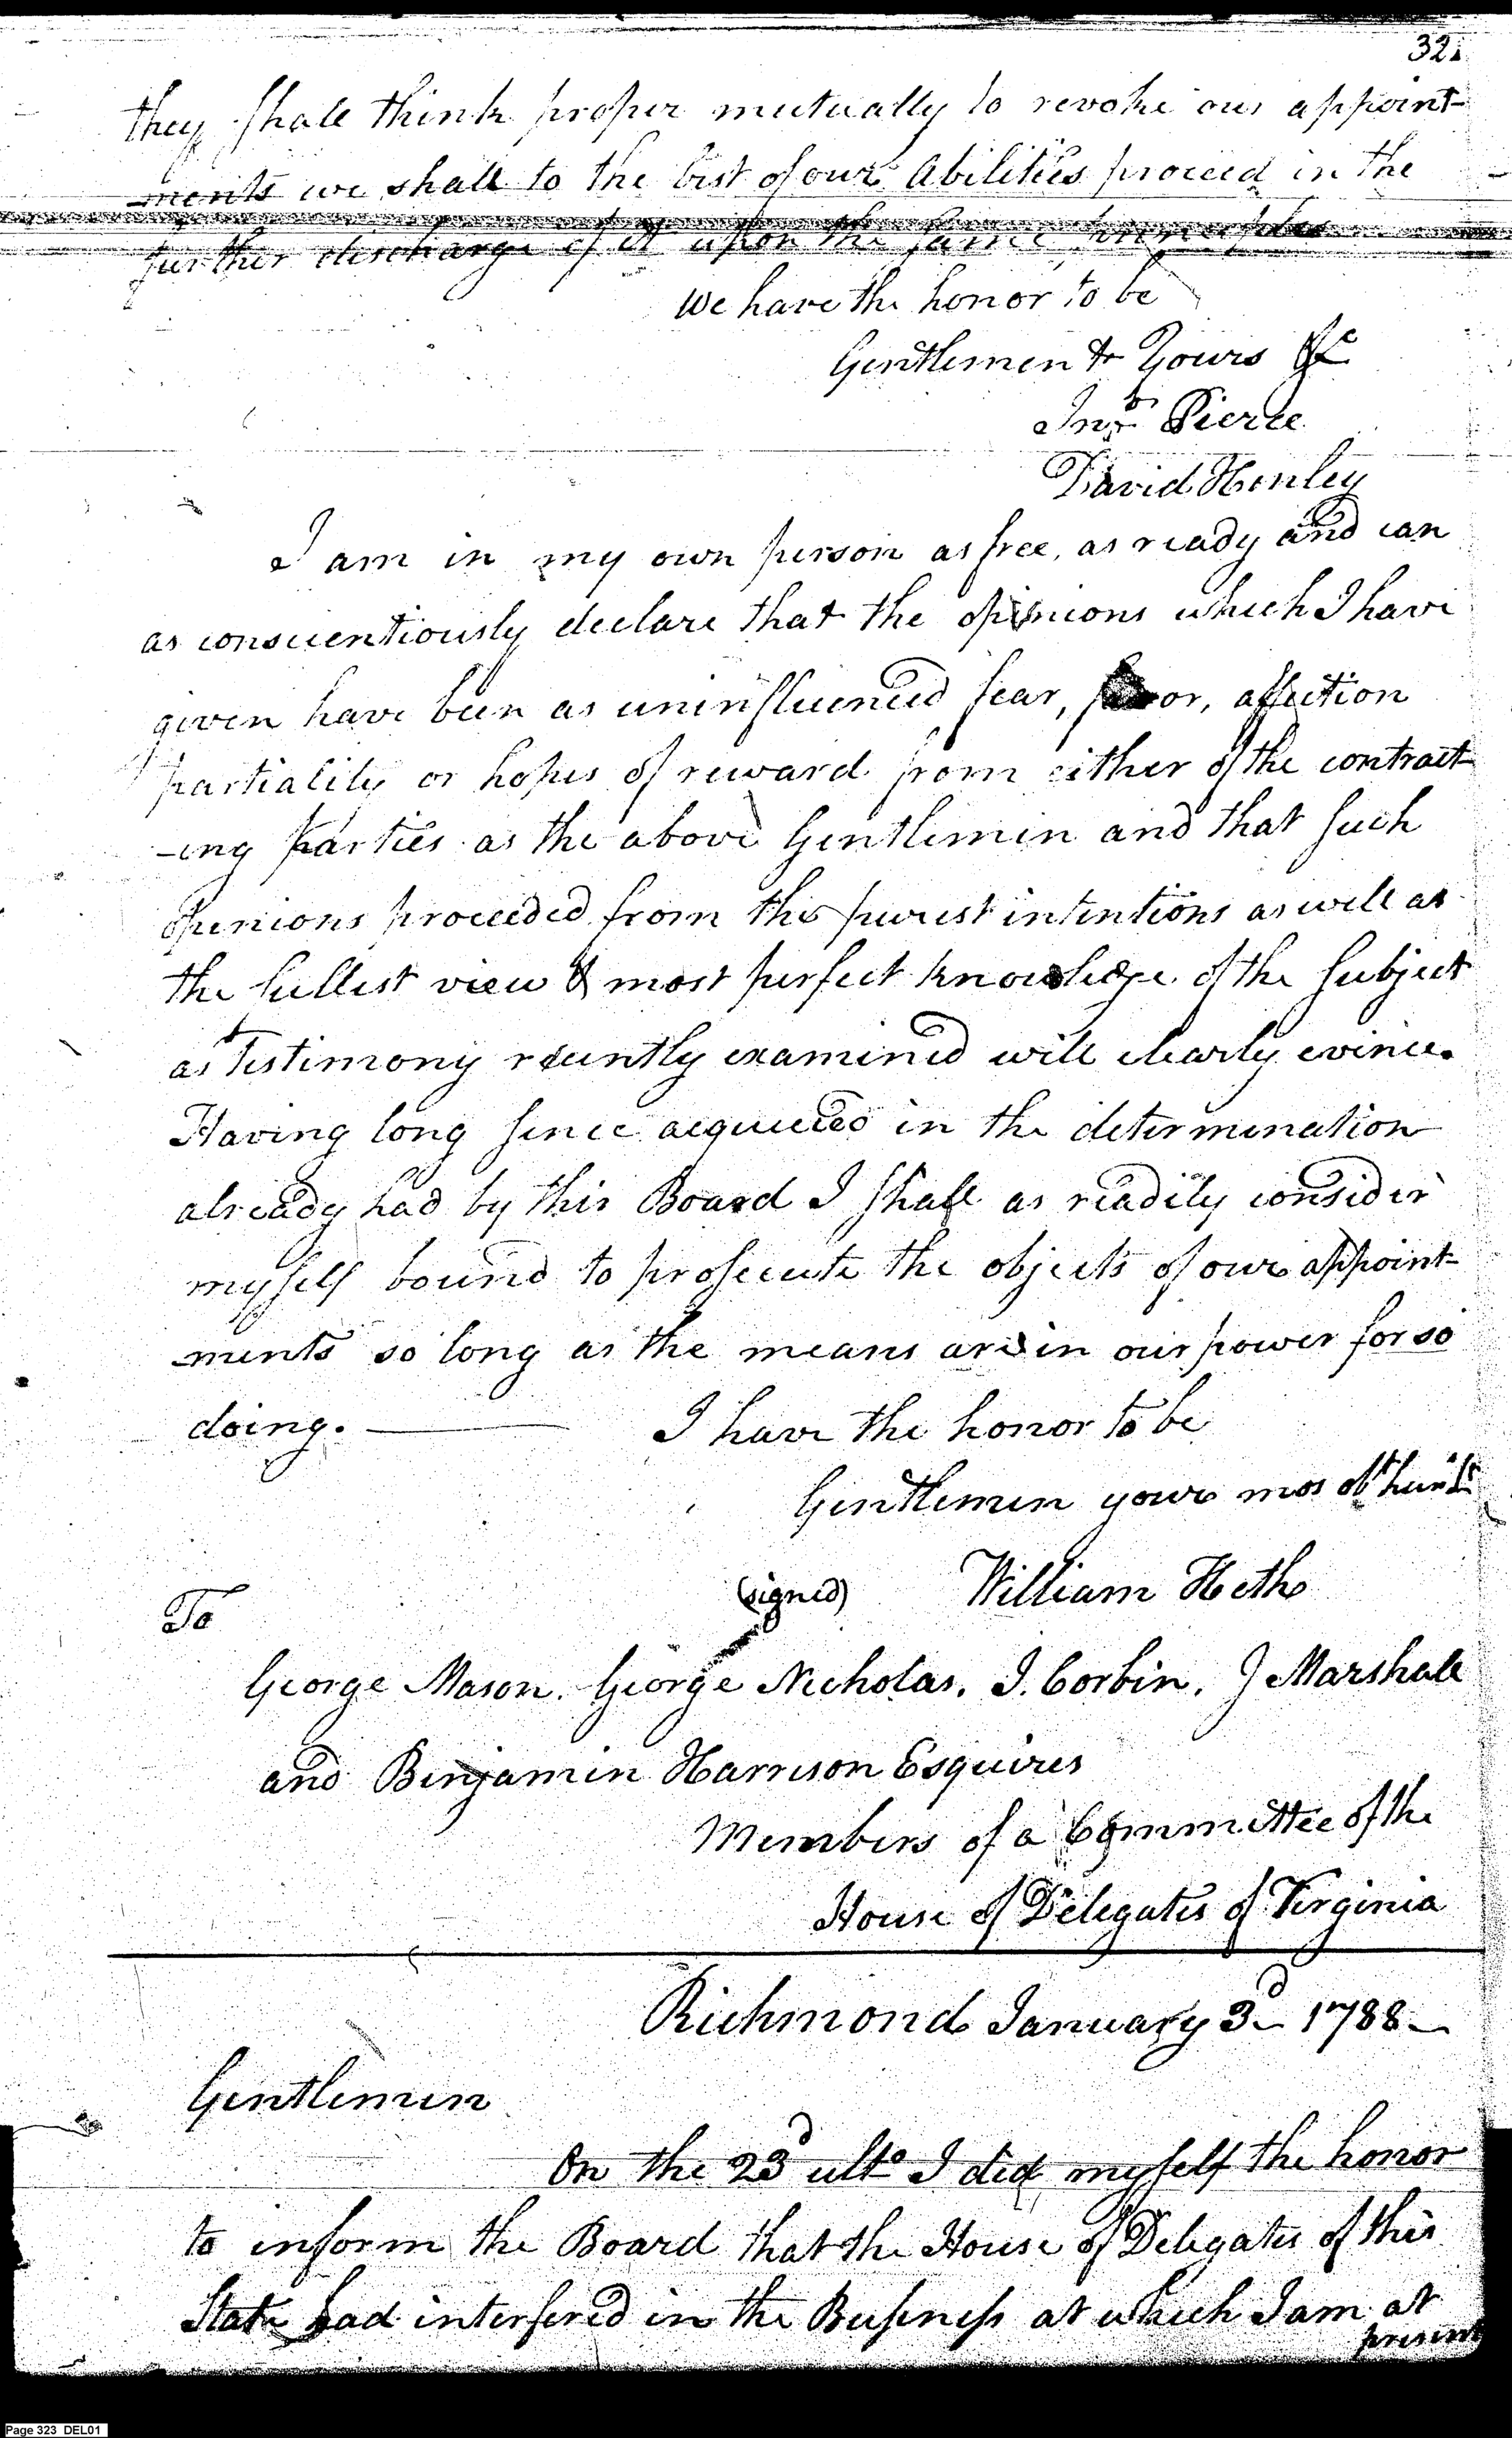 32
they shall think proper mutually to revoke our appoint-
-ments we shall to the best of our Abilities proceed in the
further discharge of it upon the same principles
We have the honor to be
Gentlemen & Yours &c
Jno Pierce
David Henley
I am in my own person as free, as ready and can
as conscientiously declare that the opinions which I have
given have been as uninfluenced fear, favor, affection
partiality or hopes of reward from either of the contract-
-ing parties as the above Gentlemen and that such
Opinions proceeded from the purest intentions as well as
the fullest view & most perfect knowledge of the Subject
as Testimony recently examined will clearly evince.
Having long since acquiesced in the determination
already had by this Board I shall as readily consider
myself bound to prosecute the objects of our appoint-
-ments so long as the means are in our power for so
doing. I have the honor to be
Gentlemen your mos obt
(signed) William Heth
To
George Mason. George Nicholas. J. Corbin. J Marshall
and Benjamin Harrison Esquires
Members of a Committee of the
House of Delegates of Virginia
Richmond January 3d 1788
Gentlemen
On the 23d ulto I did myself the honor
to inform the Board that the House of Delegates of this
State had interfered in the Business at which I am at
present
Page 323 DEL01